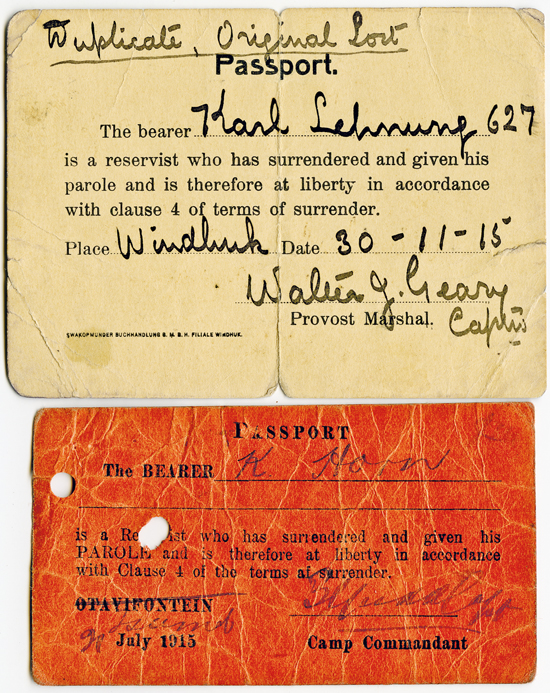 Duplicate, Original Lost
Passport.
The bearer Karl Lehnung 627
is a reservist who has surrendered and given his
parole and is therefore at liberty in accordance
with clause 4 of terms of surrender.
Place Windhuk Date 30-11-15
Walter J. Geary
Provost Marshal. Captn
SWAKOPMUNDER BUCHHANDLUNG G. M. B. H. FILIALE WINDHUK.
PASSPORT
The BEARER K Horn
is a Reservist who has surrendered and given his
PAROLE and is therefore at liberty in accordance
with Clause 4 of the terms of surrender.
OTAVIFONTEIN
July 1915
Camp Commandant